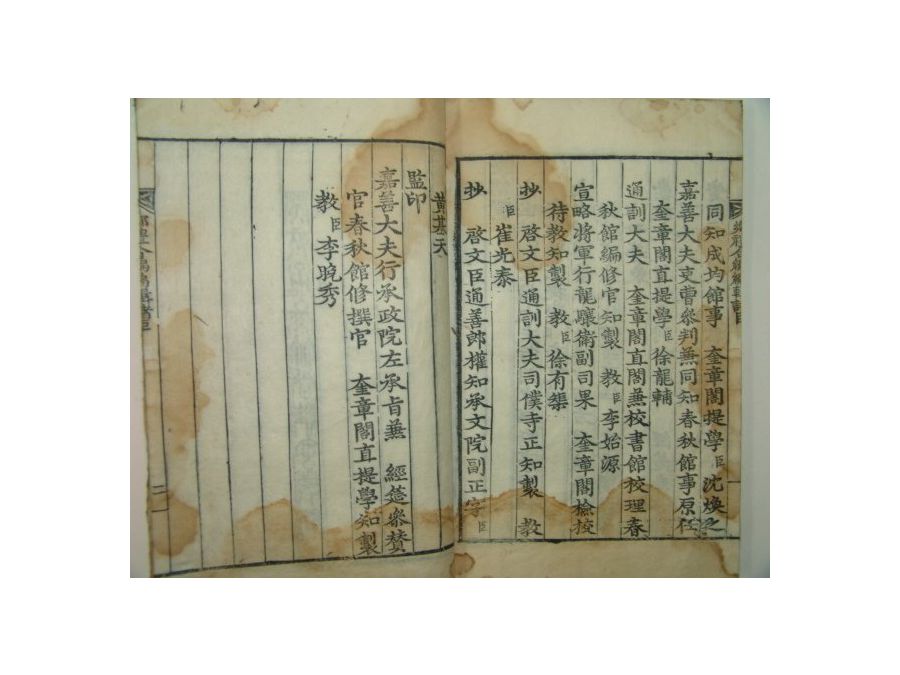 同知成均館事 奎章閣提學臣沈煥之
嘉善大夫吏曹參判兼同知春秋館事原任
奎章閣直提學臣徐龍輔
通訓大夫 奎章閣直閣兼校書館校理春
秋館編修官知製 教臣李始源
宣略將軍行龍驤衛副司果 奎章閣檢校
待教知製 教臣徐有榘
抄 啓文臣通訓大夫司僕寺正知製 教
臣崔光泰
抄 啓文臣通善郎權知承文院副正字臣
黃基天
監印
嘉善大夫行承政院左承旨兼 經筵參贊
官春秋館修撰官 奎章閣直提學知製
教臣李晚秀
二